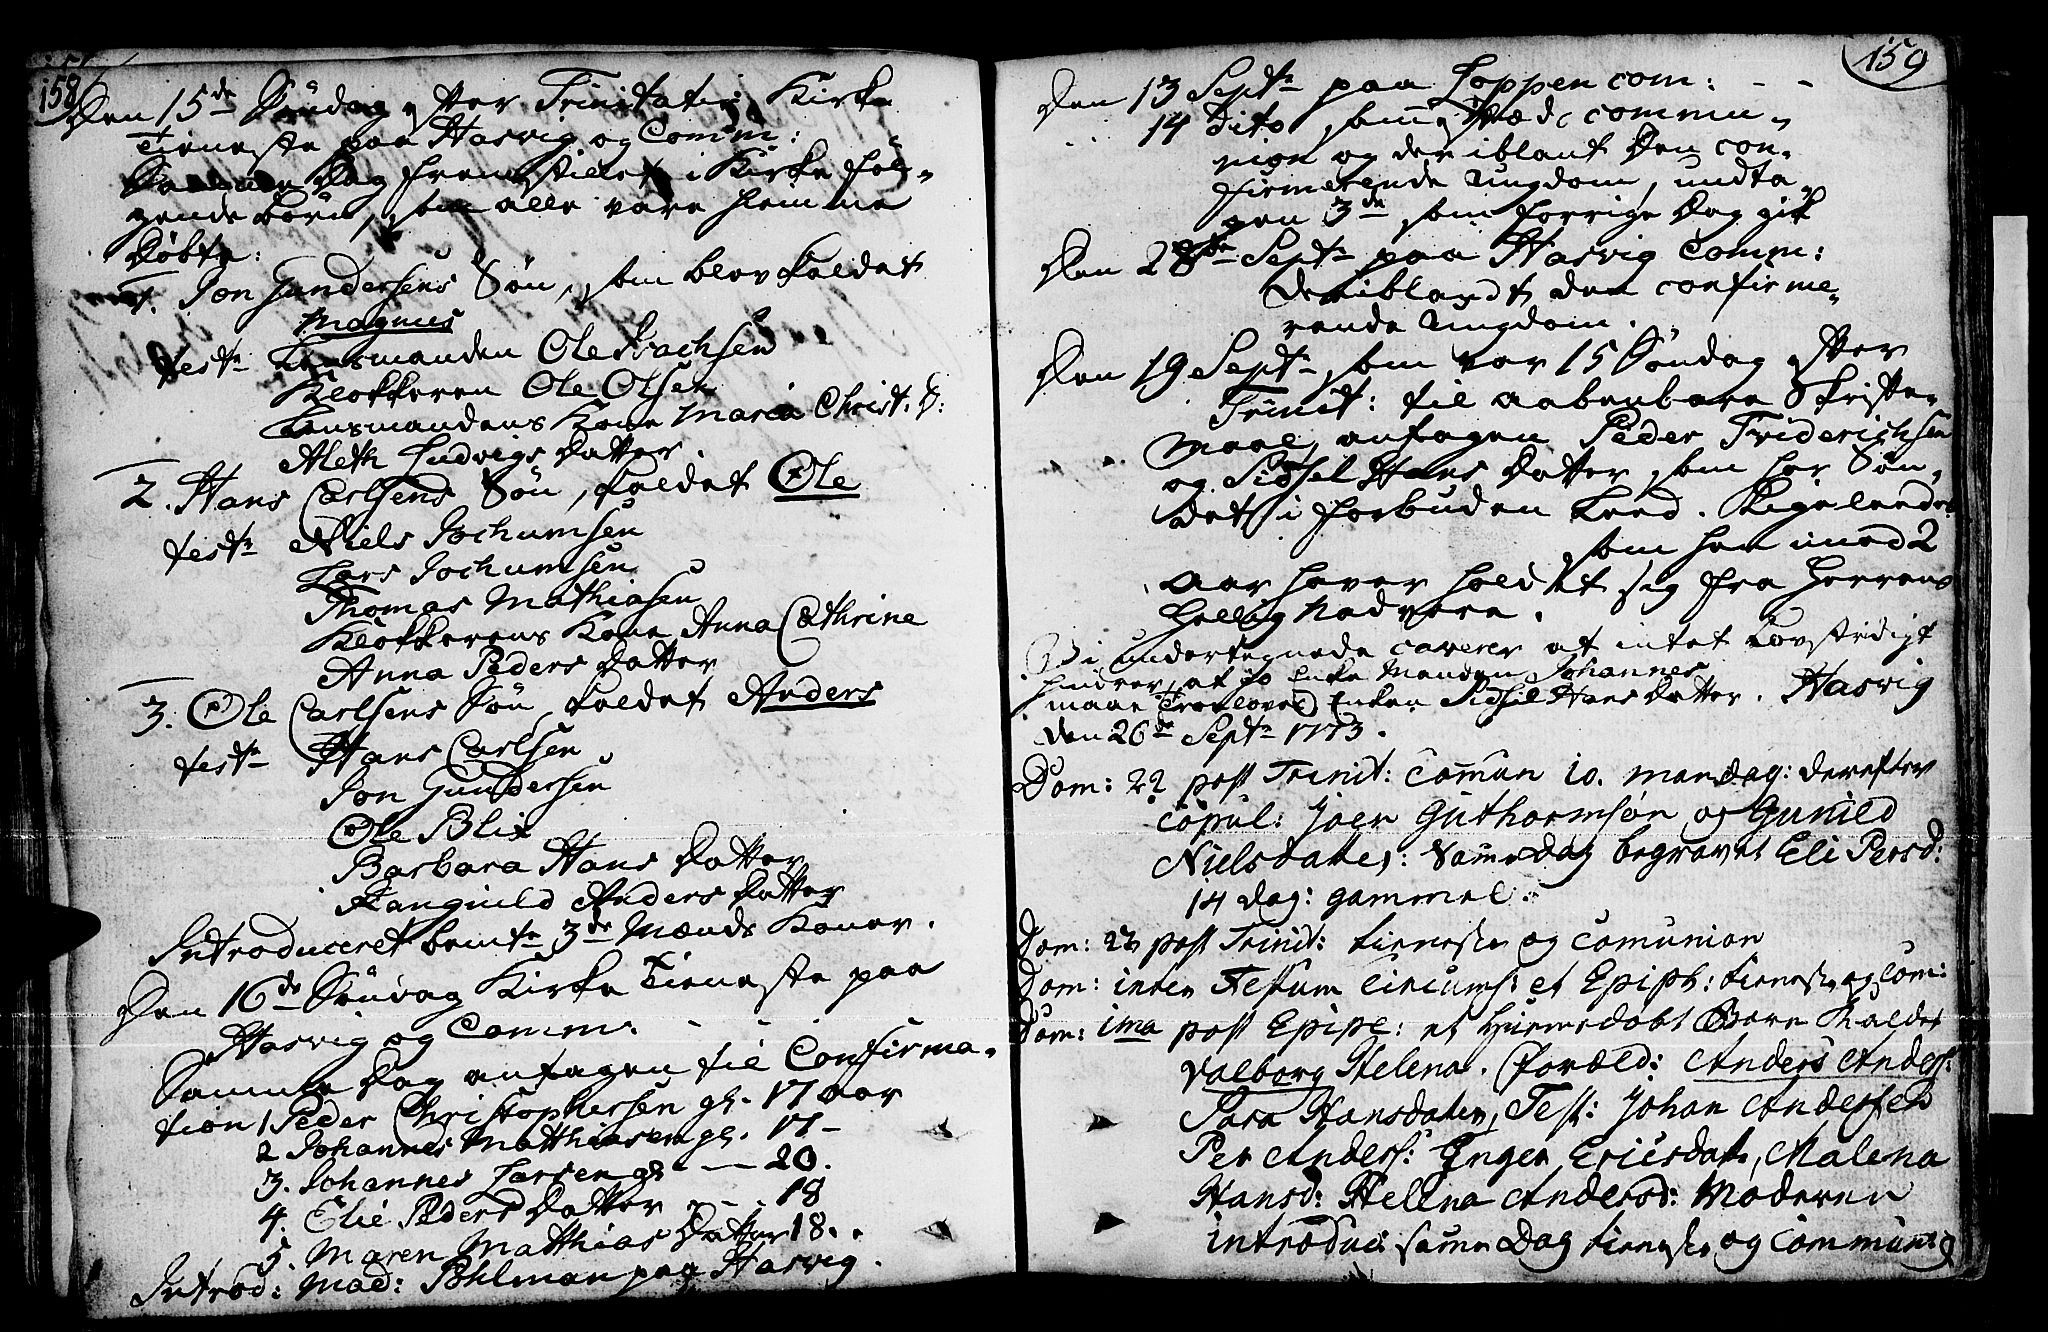 158
Den 15de Søndag efter Trinitatis Kirke
Tieneste paa Hasvig og Comm:
Samme Dag fremstillet i Kirke føl-
gende børn, som alle vare hiemme
døbte:
1. Jon Gundersens Søn, som blev kaldet
Magnus
test: Lensmanden Ole Isachsen
Klokkeren Ole Olsen
Lensmandens Kone Maria Christ: D:
Aleth Ludvigs Datter
2. Hans Carlsens Søn, kaldet Ole
test: Niels Jochumsen
Lars Jochumsen
Thomas Mathiasen
Klokkerens Kone Anna Cathrine
Anna Peders Datter
3. Ole Carlsens Søn, kaldet Anders
test: Hans Carlsen
Jon Gundersen
Ole Blix
Barbara Hans Datter
Ranguild Anders Datter
Introduceret bemte 3de Mænds Koner.
Den 16de Søndag Kirke Tieneste paa
Hasvig og Comm:
Samme Dag antagen til Confirma-
tion 1 Peder Christophersen gl. 17 aar
2 Johannes Matthiasen gl. 17 -
3. Johannes Larsen gl - - 20.
4. Elie Peders Datter - - - 18
5. Maren Matthias Datter 18.
Introd: Mad: Pohlman paa Hasvig.
159
Den 13 Septr paa Loppen com: - -
14 Dito samme Stæd commu-
nion og der iblant Den con-
firmerende Ungdom, undta-
gen 3de som forrige Dag gik
Den 28de Septr paa Hasvig Comm:
Deriblandt den confirme-
rende Ungdom.
Den 19 Septr som var 15 Søndag efter
Trinit: til aabenbare Skrifte-
maal, antagen Peder Friderichsen
og Sidsel Hans Datter, som har Syn-
det i forbuden Leed. Ligeledes
som han imod 2
Aar haver holdet sig fra Herrens
hellig Nadvere.
Vi undertegnede caverer at intet Lovstridigt
hindrer, at jo Enke Manden Johannes
maae Troeloved Enken Sidsil Hans Datter. Hasvig
den 26de Septr 1773.
Dom: 22 post Trinit: Comun 10. mandag: derefter
copul: Joen Guthormsøn og Gunild
Nielsdatter: Samedag begravet Eli Persd:
14 dag: gammel.
Dom: 23 post Trinit: tieneste og Comunion
Dom: inter Festum Circums: et Epiph: tieneste og Com:
Dom: 1ma post Epiph: et hiemedøbt Barn kaldet
Valborg Helena. Foræld: Anders Anders:
Sara Hansdatter, Test: Johan Andersen
Per Anders: Inger Ericsdatt, Malena
Hansd: Helena Andersd: Moderen
introduc: samme Dag tieneste og Communi: